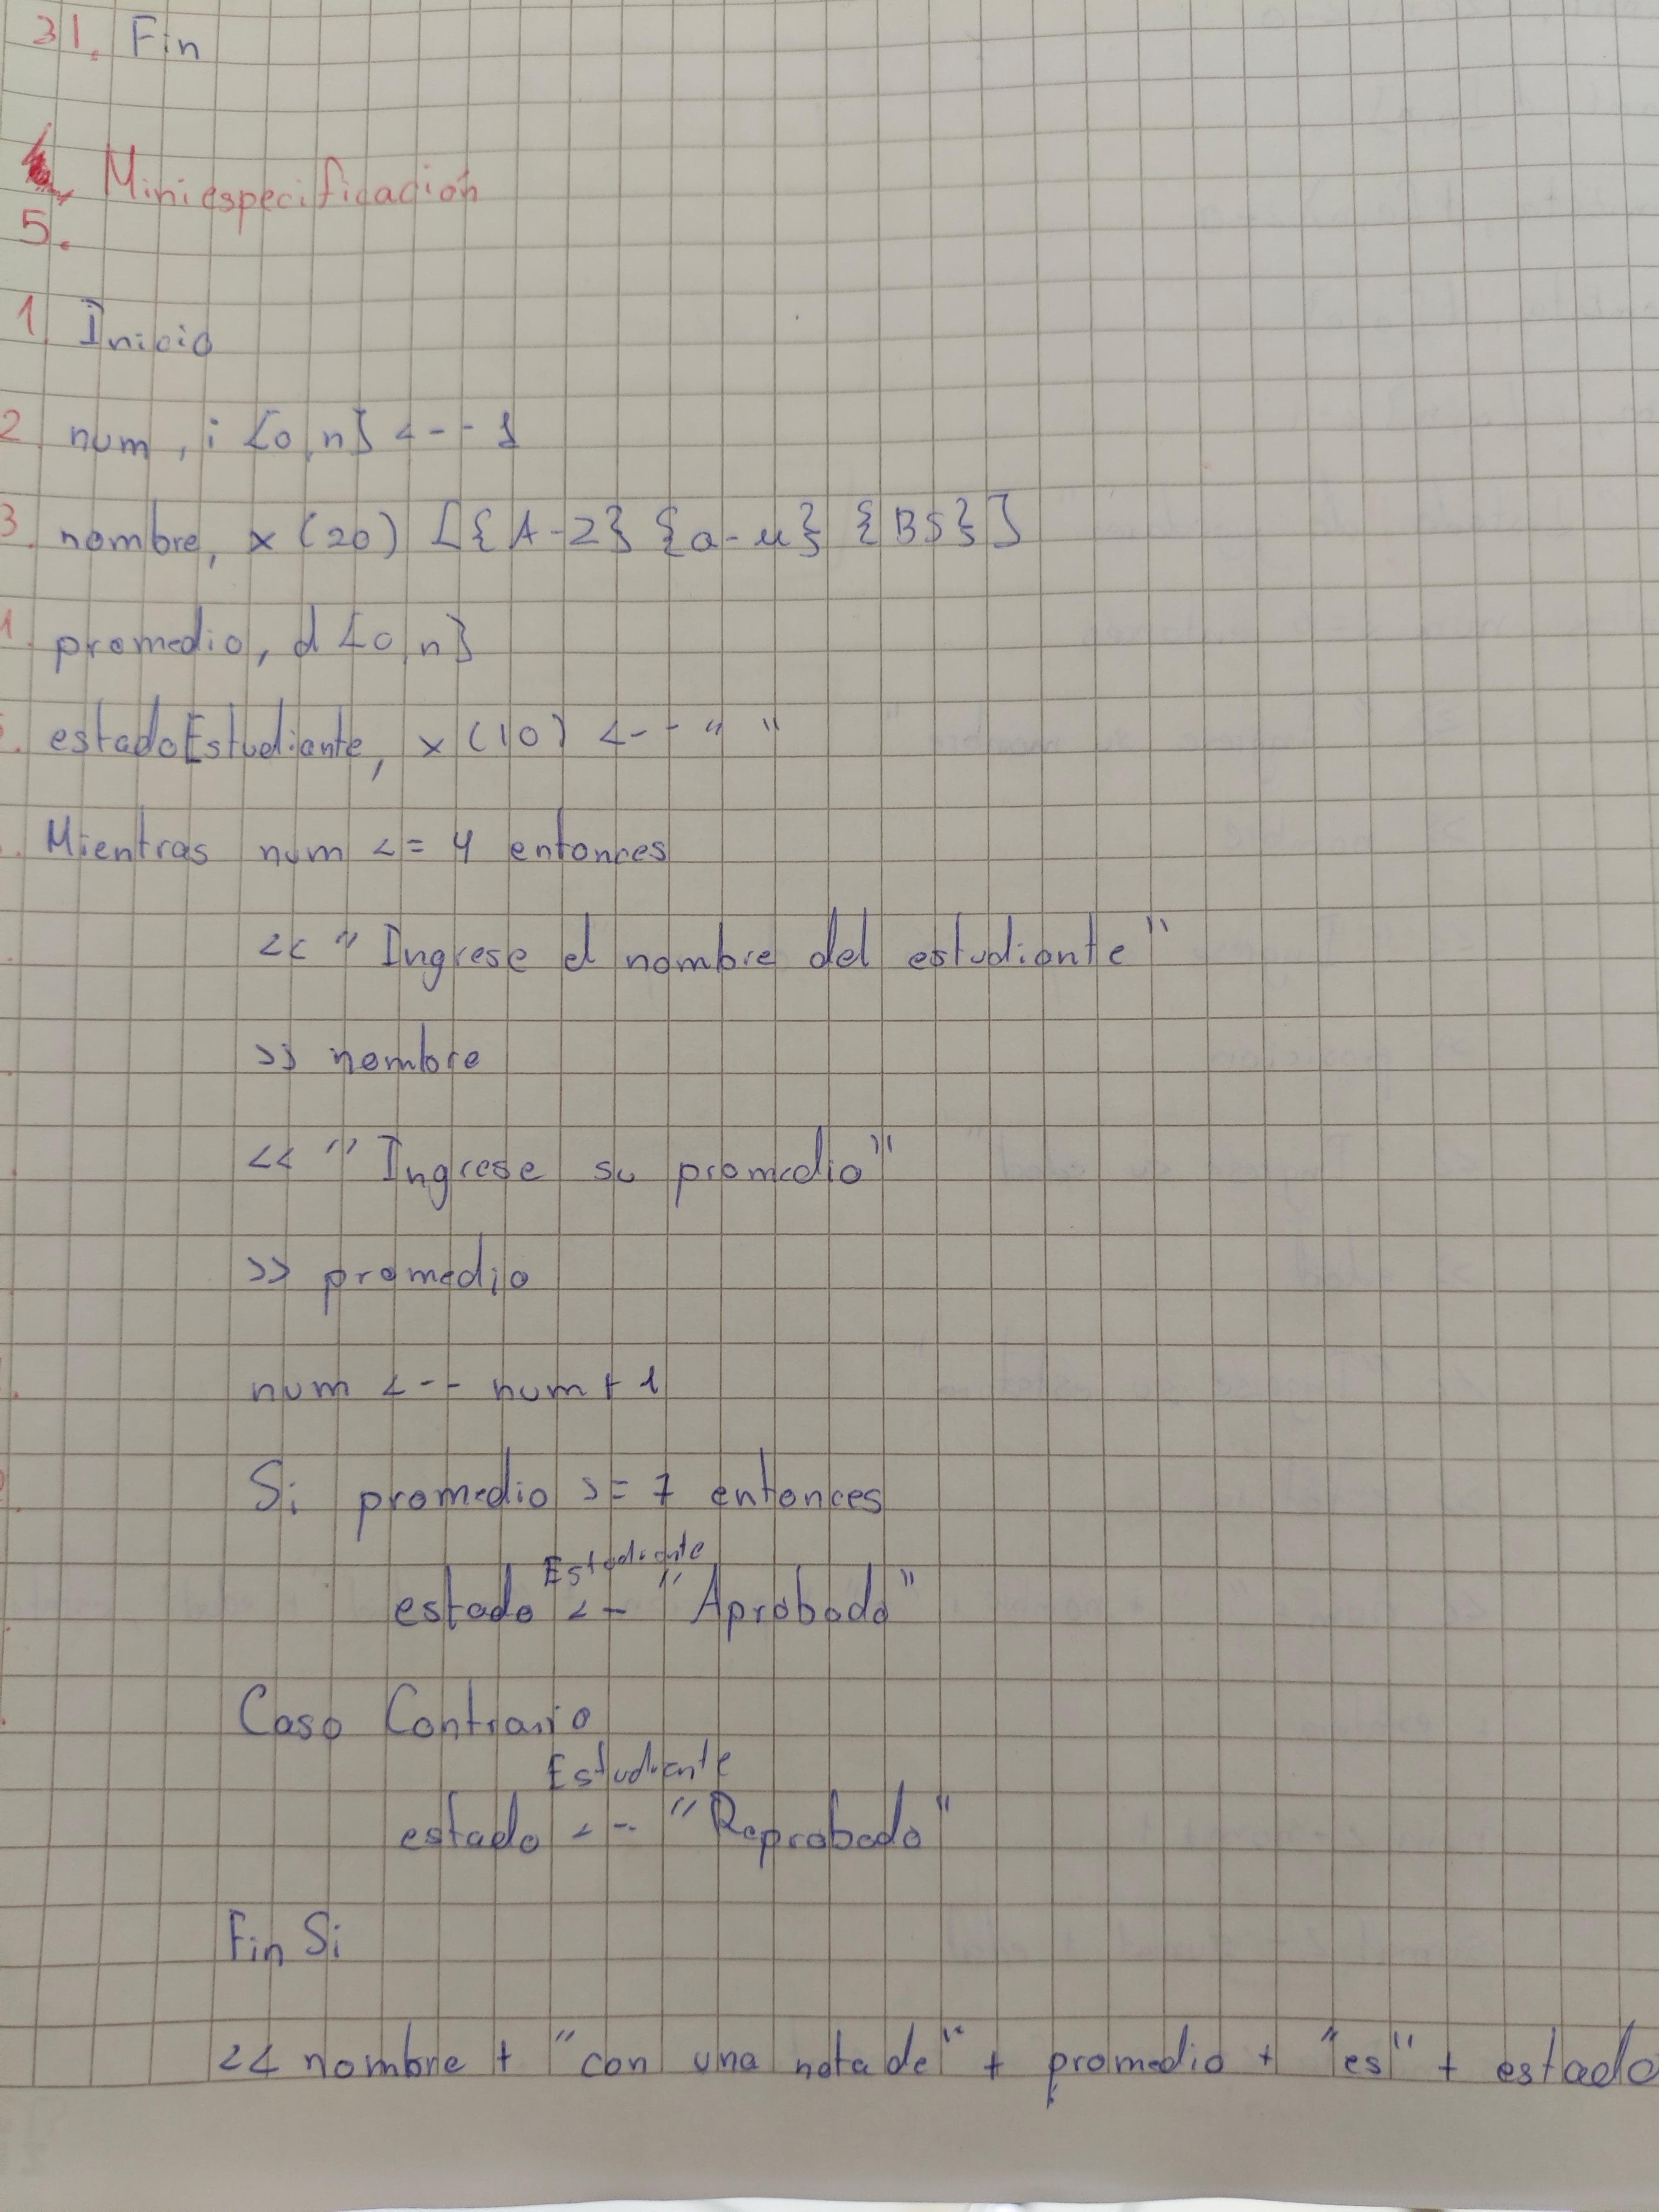 31. Fin
Miniespecificación
5.
1. Inicio
2. num, i [0,n] <-- 1
3. nombre, x (20) [{A-Z} {a-z} {BS}]
4. promedio, d [0,n]
5. estadoEstudiante, x (10) <-- " "
Mientras num <= 4 entonces
<< "Ingrese el nombre del estudiante"
>> nombre
<< "Ingrese su promedio"
>> promedio
num <-- num + 1
Si promedio >= 7 entonces
Estudiante
estado <- "Aprobado"
Caso Contrario
Estudiante
estado <- "Reprobado"
Fin Si
<< nombre + "con una nota de" + promedio + "es" + estado